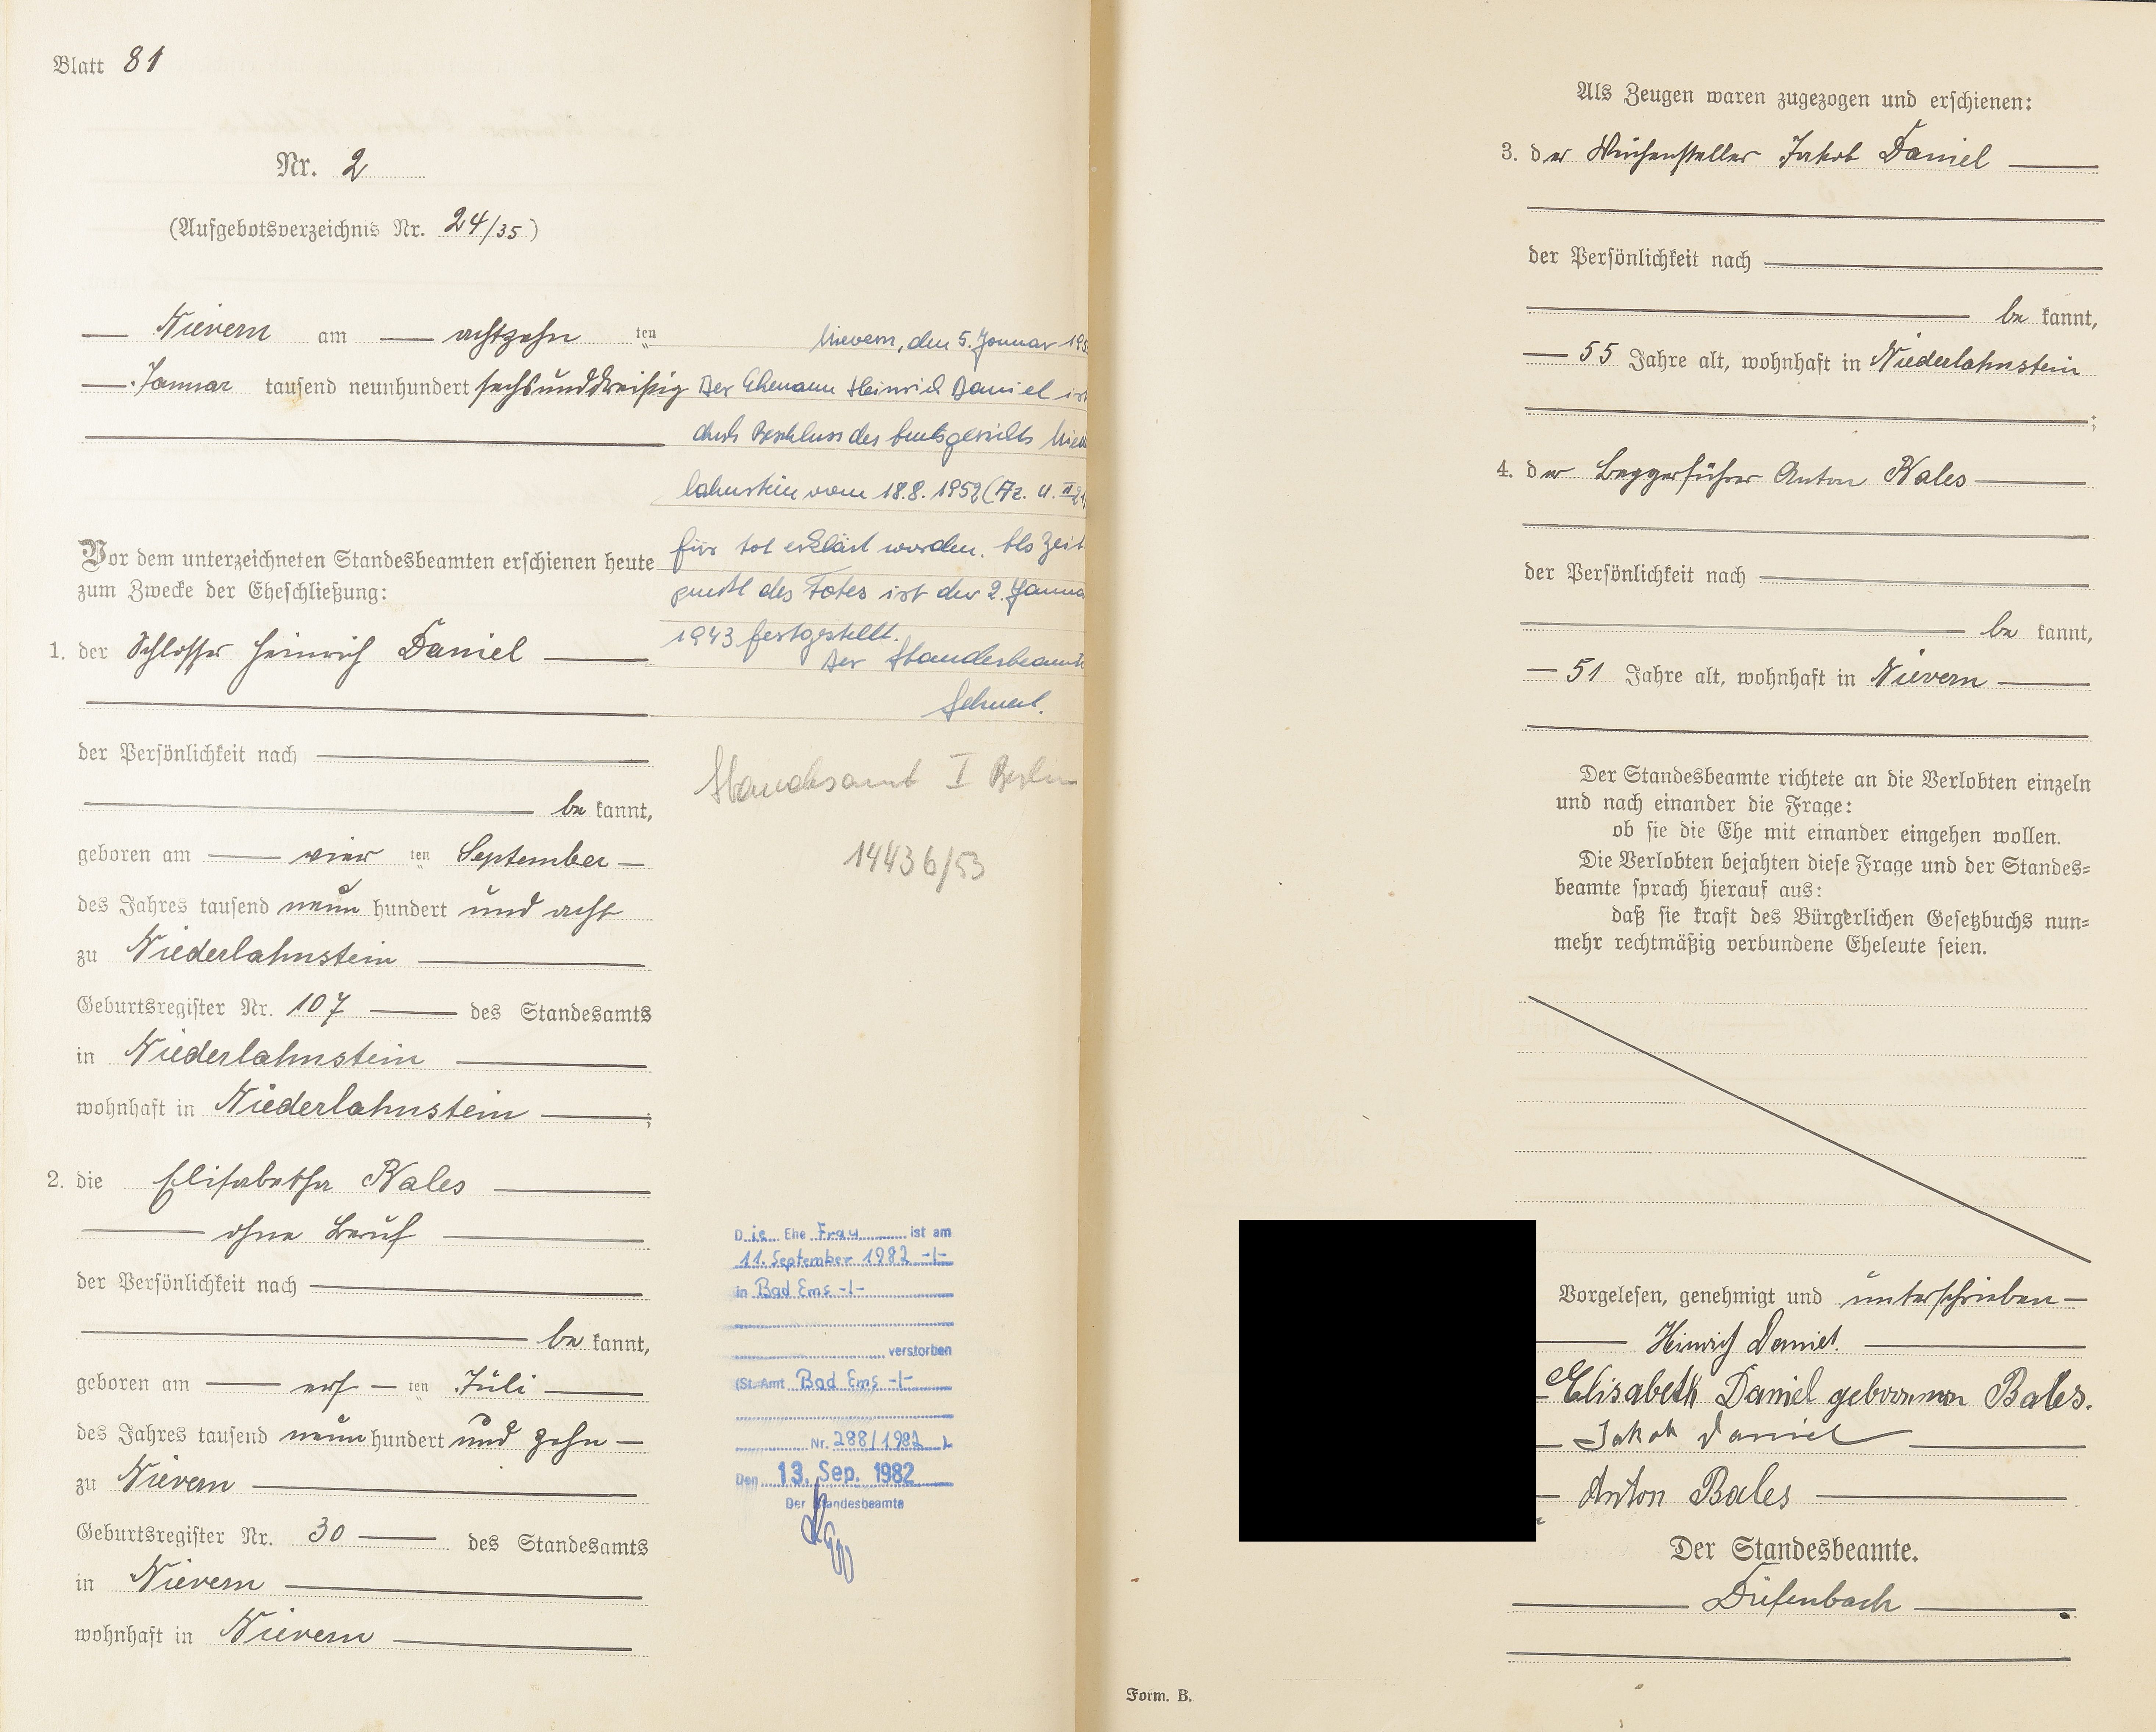 Blatt 81
Nr. 2
(Aufgebotsverzeichnis Nr. 24/35)
Nievern am achtzehn ten
Januar tausend neunhundert sechsunddreißig
Vor dem unterzeichneten Standesbeamten erschienen heute
zum Zwecke der Eheschließung:
1. der Schlosser Heinrich Daniel
der Persönlichkeit nach
be kannt,
geboren am vier ten September
des Jahres tausend neun hundert und acht
zu Niederlahnstein
Geburtsregister Nr. 107 des Standesamts
in Niederlahnstein
wohnhaft in Niederlahnstein ;
2. die Elisabetha Bales
ohne Beruf
der Persönlichkeit nach
be kannt,
geboren am elf ten Juli
des Jahres tausend neun hundert und zehn
zu Nievern
Geburtsregister Nr. 30 des Standesamts
in Nievern
wohnhaft in Nievern
Nievern, den 5. Januar 195
Der Ehemann Heinrich Daniel ist
durch Beschluss des Amtsgerichts Nied
lahnstein vom 18.8.1952 (Az. 4. II 21
für tot erklärt worden. Als Zeit
punkt des Todes ist der 2. Janua
1943 festgestellt.
Der Standesbeamte
Standesamt I Berlin
14436/53
Die Ehe Frau ist am
11. September 1982 -/-
in Bad Ems -/-
verstorben
(St. Amt Bad Ems -/-
Nr. 288/1982 )
Den 13. Sep. 1982
Der Standesbeamte
Als Zeugen waren zugezogen und erschienen:
3. der Weichensteller Jakob Daniel
der Persönlichkeit nach
be kannt,
55 Jahre alt, wohnhaft in Niederlahnstein
;
4. der Baggerführer Anton Bales
der Persönlichkeit nach
be kannt,
51 Jahre alt, wohnhaft in Nievern
Der Standesbeamte richtete an die Verlobten einzeln
und nach einander die Frage:
ob sie die Ehe mit einander eingehen wollen.
Die Verlobten bejahten diese Frage und der Standes=
beamte sprach hierauf aus:
daß sie kraft des Bürgerlichen Gesetzbuchs nun=
mehr rechtmäßig verbundene Eheleute seien.
Vorgelesen, genehmigt und unterschrieben
Heinrich Daniel.
Elisabeth Daniel geborenen Bales.
Jakob Daniel
Anton Bales
Der Standesbeamte.
Diefenbach
Form. B.